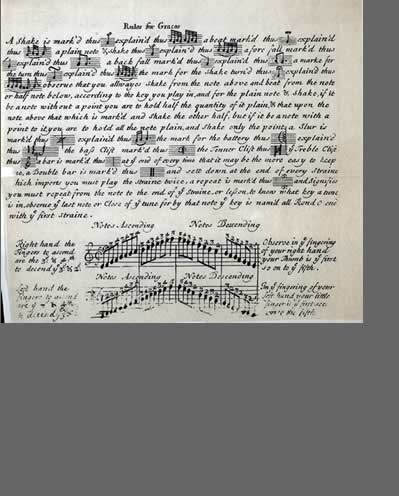 Rules for Graces
A Shake is mark'd thus explain'd thus a beat mark'd thus explain'd
thus a plain note & Shake thus explain'd thus a fore fall mark'd thus
explain'd thus a back fall mark'd thus explain'd thus a marke for
the turn thus explain'd thus the mark for the Shake turn'd thus explain'd thus
observe that you allwayes Shake from the note above and beat from the note
or half note below, according to the key you play in, and for the plain note & Shake, if it
be a note without a point you are to hold half the quantity of it plain, & that upon the
note above that which is mark'd and Shake the other half, but if it be a note with a
point to it, you are to hold all the note plain, and Shake only the point; a Slur is
mark'd thus explain'd thus the mark for the battery thus explain'd
thus the bass Clift mark'd thus the Tenner Clift thus yᵉ Treble Clift
thus a bar is mark'd thus at yᵉ end of every time that it may be the more easy to keep
a Double bar is mark'd thus and sett down at the end of every Straine
which imports you must play the straine twice, a repeat is mark'd thus and signifies
you must repeat from the note to the end of yᵉ Straine, or lesson, to know what key a tune
is in, observe yᵉ last note or Close of yᵉ tune for by that note yᵉ key is nam'd all Rond
with yᵉ first straine.
Notes Ascending Notes Descending
Right hand the
fingers to ascend
are the
to descend yᵉ
Observe in yᵉ fingering
of your right hand
your Thumb is yᵉ first
so on to yᵉ fifth.
Notes Ascending Notes Descending
Left hand the
fingers to ascend
are yᵉ
In yᵉ fingering of your
left hand your little
finger is yᵉ first
the fifth.